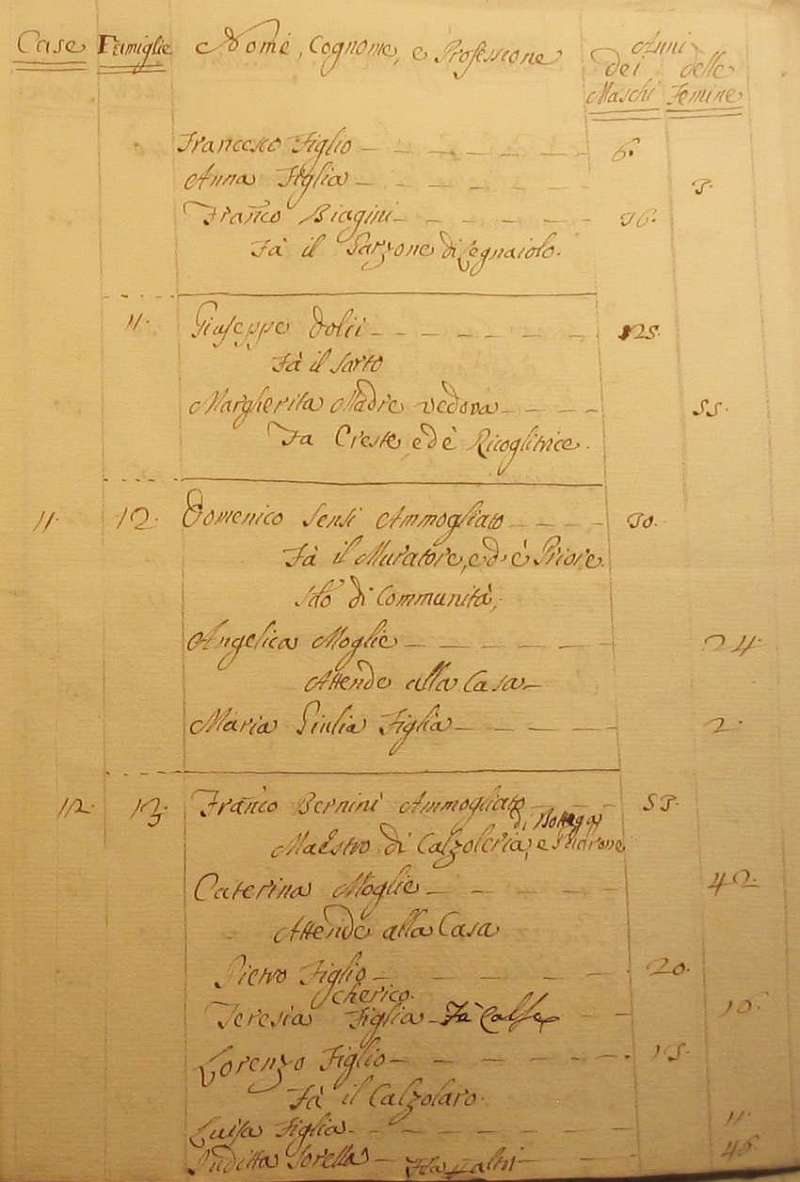 Case Famiglie Nome, Cognome, e Professione Anni
dei delle
Maschi Femine
Francesco Figlio 6.
Anna Figlia
Franco Biagini
Fà il Garzone di Legnaiolo.
11. Giuseppe Dolci 25.
Fà il Sarto
Margherita Madre vedova 55.
Fa Creste ed è Ricoglitrice.
11. 12. Domenico Sensi Ammogliato 30.
Fà il Muratore, ed è Priore
di Communità,
Angelica Moglie 24.
Attende alla Casa
Maria Giulia Figlia 2.
12. 13. Franco Bernini Ammogliato
di Bottega
Maestro di Calzoleria, e Padrone
Caterina Moglie 42.
Attende alla Casa
Pietro Figlio 20.
cherico.
Teresia Figlia Fà Calse
Lorenzo Figlio 15.
Fà il Calzolaro.
Luisa Figlia 11.
Juditta Sorella 46.